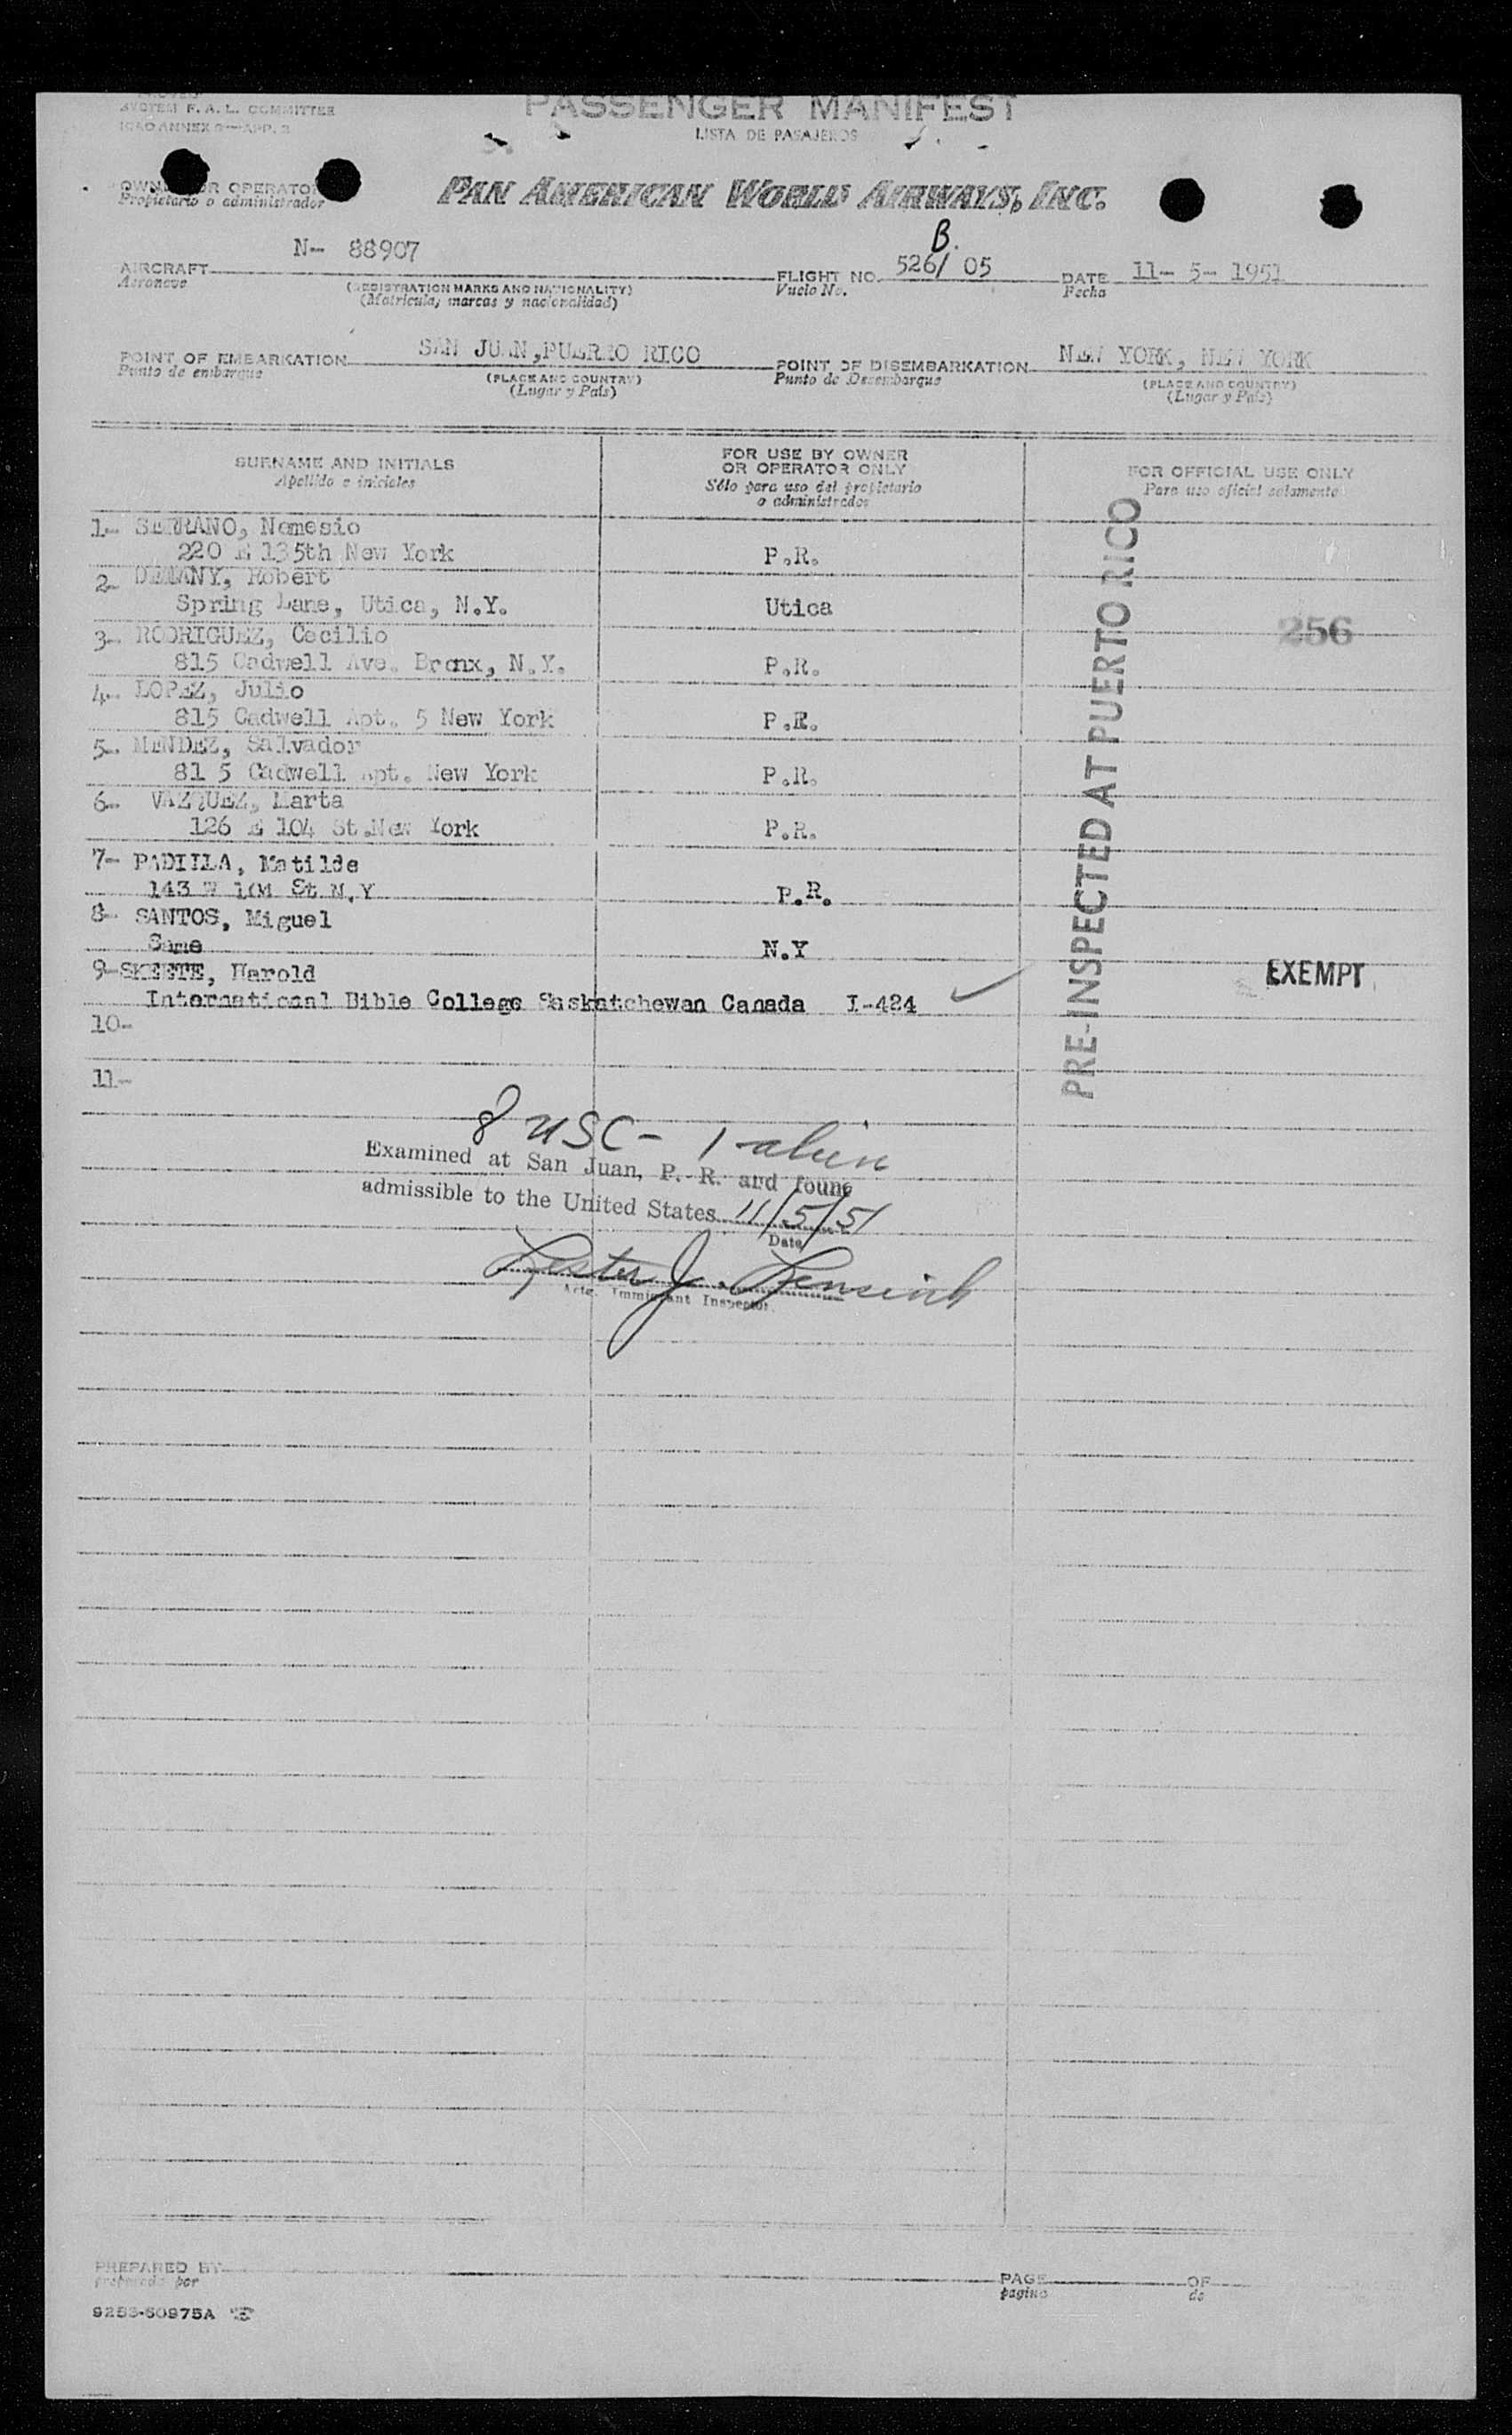 SYSTEM F. A. L. COMMITTEE
ICAO ANNEX 9—APP. 3
PASSENGER MANIFEST
LISTA DE PASAJEROS
OWNER OR OPERATOR
Propietario o administrador
PAN AMERICAN WORLD AIRWAYS, INC.
AIRCRAFT N- 88907
Aeronave
(REGISTRATION MARKS AND NATIONALITY)
(Matricula, marcas y nacionalidad)
B.
FLIGHT NO. 526/ 05
Vuelo No.
DATE 11- 5- 1951
Fecha
POINT OF EMBARKATION SAN JUAN,PUERTO RICO
Punto de embarque
(PLACE AND COUNTRY)
(Lugar y País)
POINT OF DISEMBARKATION NEW YORK, NEW YORK
Punto de Desembarque
(PLACE AND COUNTRY)
(Lugar y País)
SURNAME AND INITIALS
Apellido e iniciales
FOR USE BY OWNER
OR OPERATOR ONLY
Sólo para uso del propietario
o administrador
FOR OFFICIAL USE ONLY
Para uso oficial solamente
1- SERRANO, Nemesio
220 E 135th New York P.R.
2- DEMANY, Robert
Spring Lane, Utica, N.Y. Utica
3- RODRIGUEZ, Cecilio
256
815 Cadwell Ave. Bronx, N.Y. P.R.
4- LOPEZ, Julio
815 Cadwell Apt. 5 New York P.R.
5- MENDEZ, Salvador
81 5 Cadwell Apt. New York P.R.
6- VAZQUEZ, Marta
126 E 104 St.New York P.R.
7- PADILLA, Matilde
143 W 104 St N.Y P.R.
8- SANTOS, Miguel
Same N.Y
9-SKEETE, Harold
EXEMPT
International Bible College Saskatchewan Canada I-424
10-
11-
PRE-INSPECTED AT PUERTO RICO
8 USC - 1 - alien
Examined at San Juan, P. R. and found
admissible to the United States 11/5/51
Date
Lester J.
Immigrant Inspector.
PREPARED BY
preparado por
PAGE OF
pagina de
9253-50975A